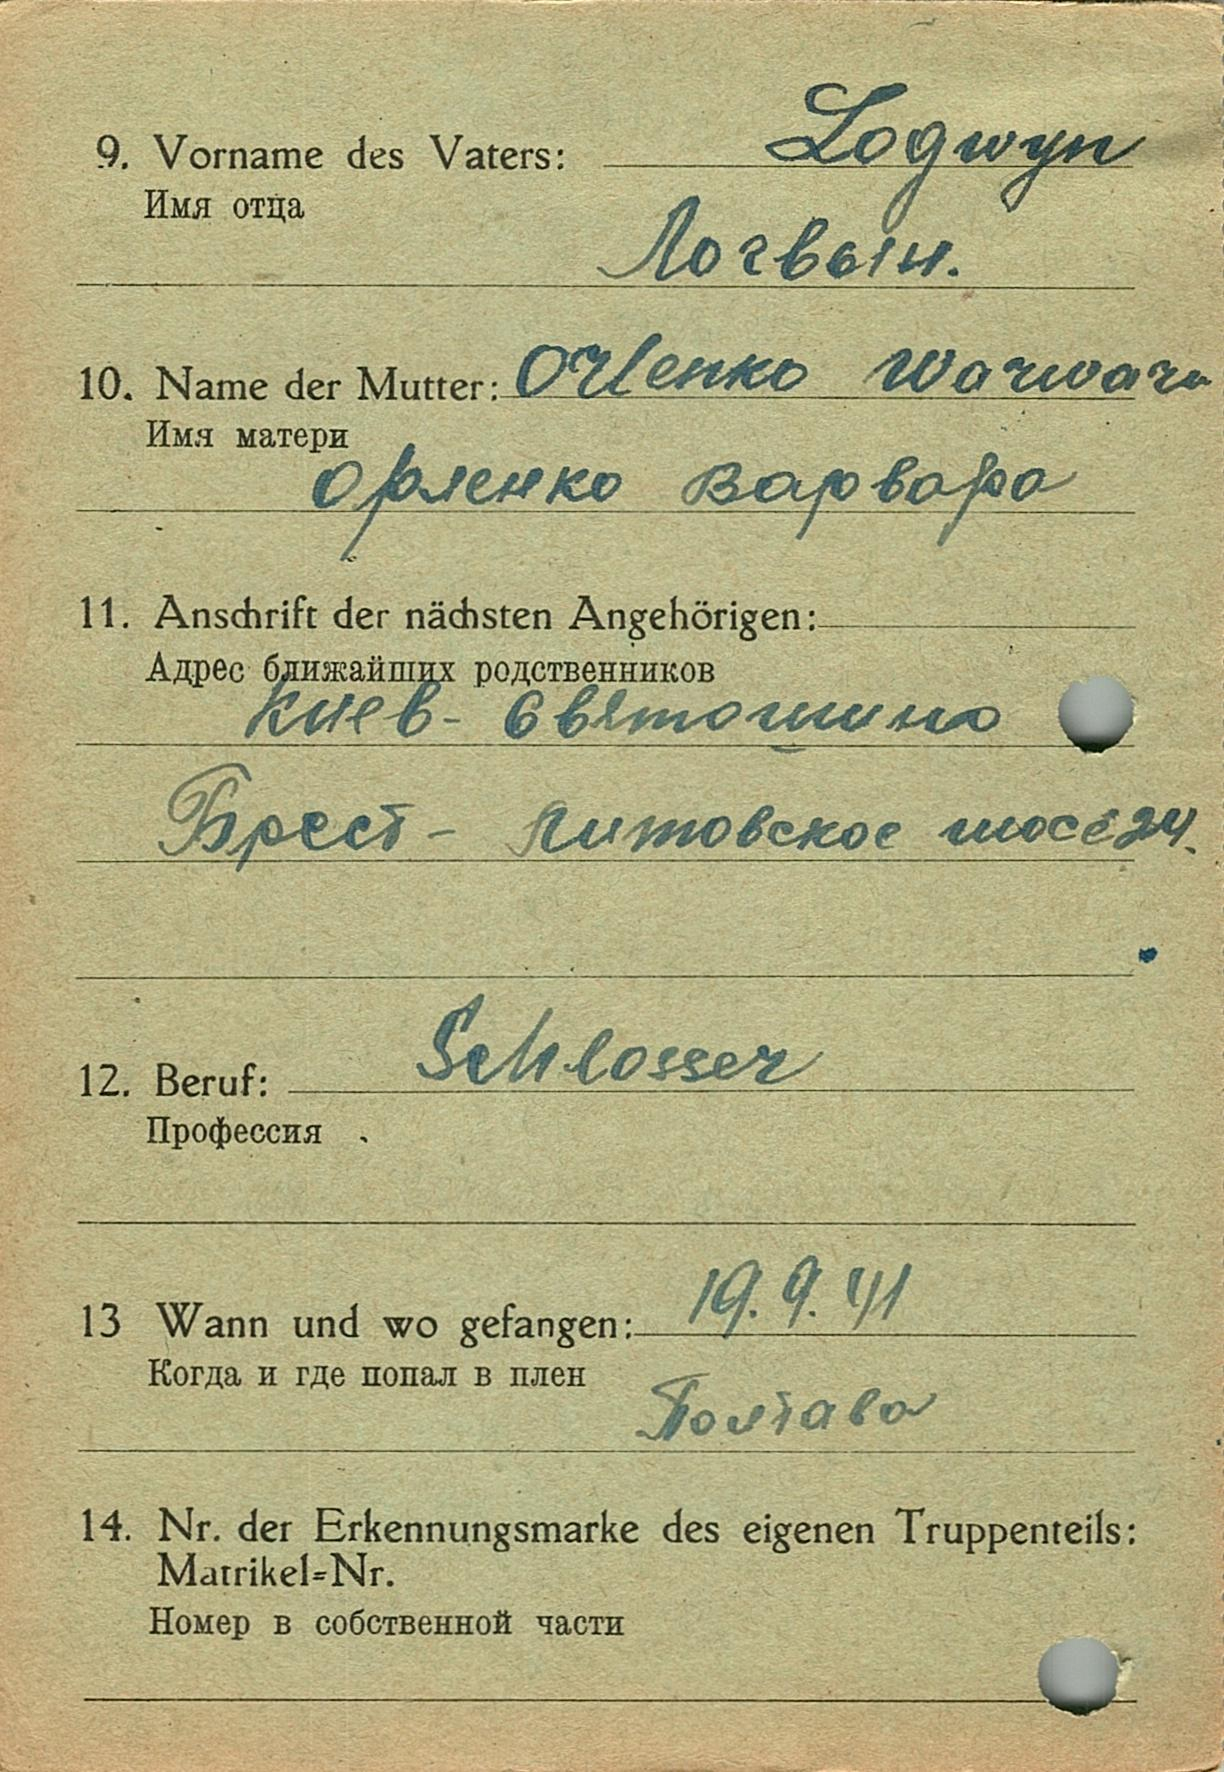 9. Vorname des Vaters: Logwyn
Имя отца
Логвын.
10. Name der Mutter: Orlenko Warwara
Имя матери
Орленко Варвара
11. Anschrift der nächsten Angehörigen:
Адрес ближайших родственников
Киев - Святошино
Брест - Литовское шосе 24.
12. Beruf: Schlosser
Профессия
13 Wann und wo gefangen: 19. 9. 41
Когда и где попал в плен
Полтава
14. Nr. der Erkennungsmarke des eigenen Truppenteils:
Matrikel=Nr.
Номер в собственной части